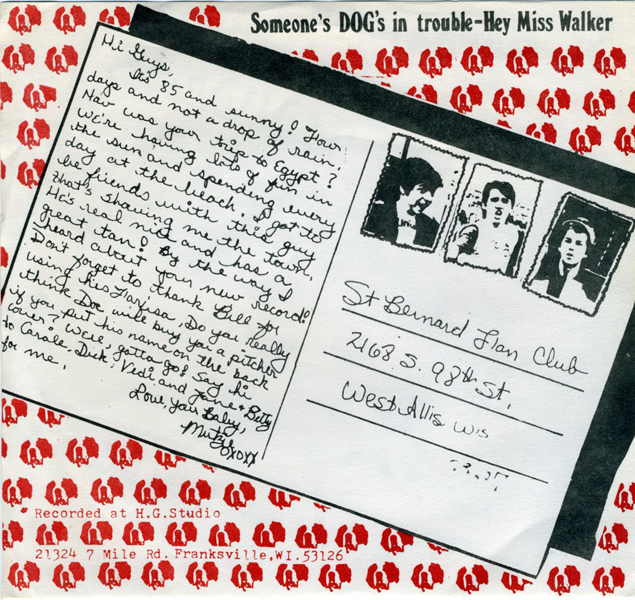 Someone's DOG's in trouble-Hey Miss Walker
Hi Guys,
Its 85 and sunny! Four
days and not a drop of rain.
How was your trip to Egypt?
We're having lots of fun in
the sun and spending every
day at the beach. I got to
be friends with this guy
that's showing me the town.
He's real nice and has a
great tan! By the way I
heard about your new record!
Don't forget to thank Bill for
using his Farfisa. Do you really
think Doc will buy you a pitcher
if you put his name on the back
cover? Well, gotta go! Say hi
to Carole, Dick, Vedi, and & Betty
for me.
Love, your Baby,
OXOXX
St Bernard Fan Club
2168 S. 98th St.
West Allis Wis
Recorded at H.G.Studio
21324 7 Mile Rd. Franksville,WI.53126